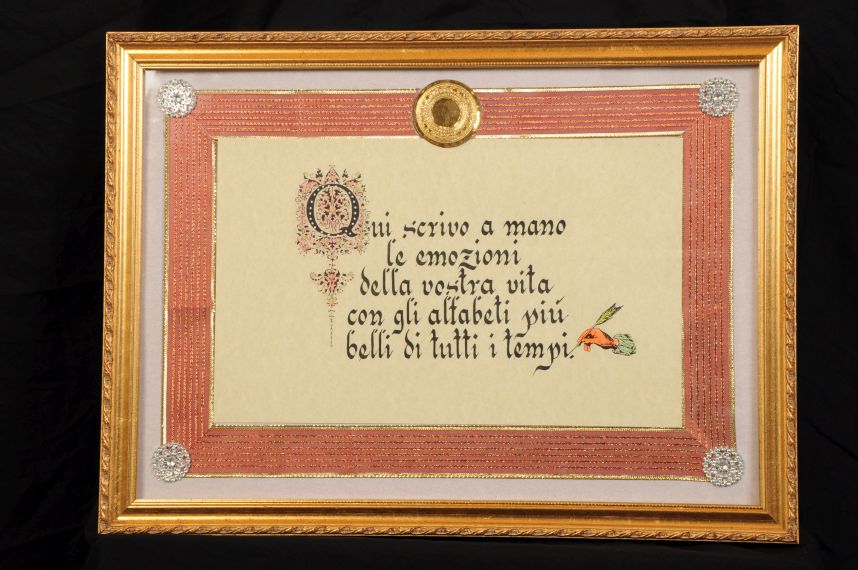 Qui scrivo a mano
le emozioni
della vostra vita
con gli alfabeti piú
belli di tutti i tempi.